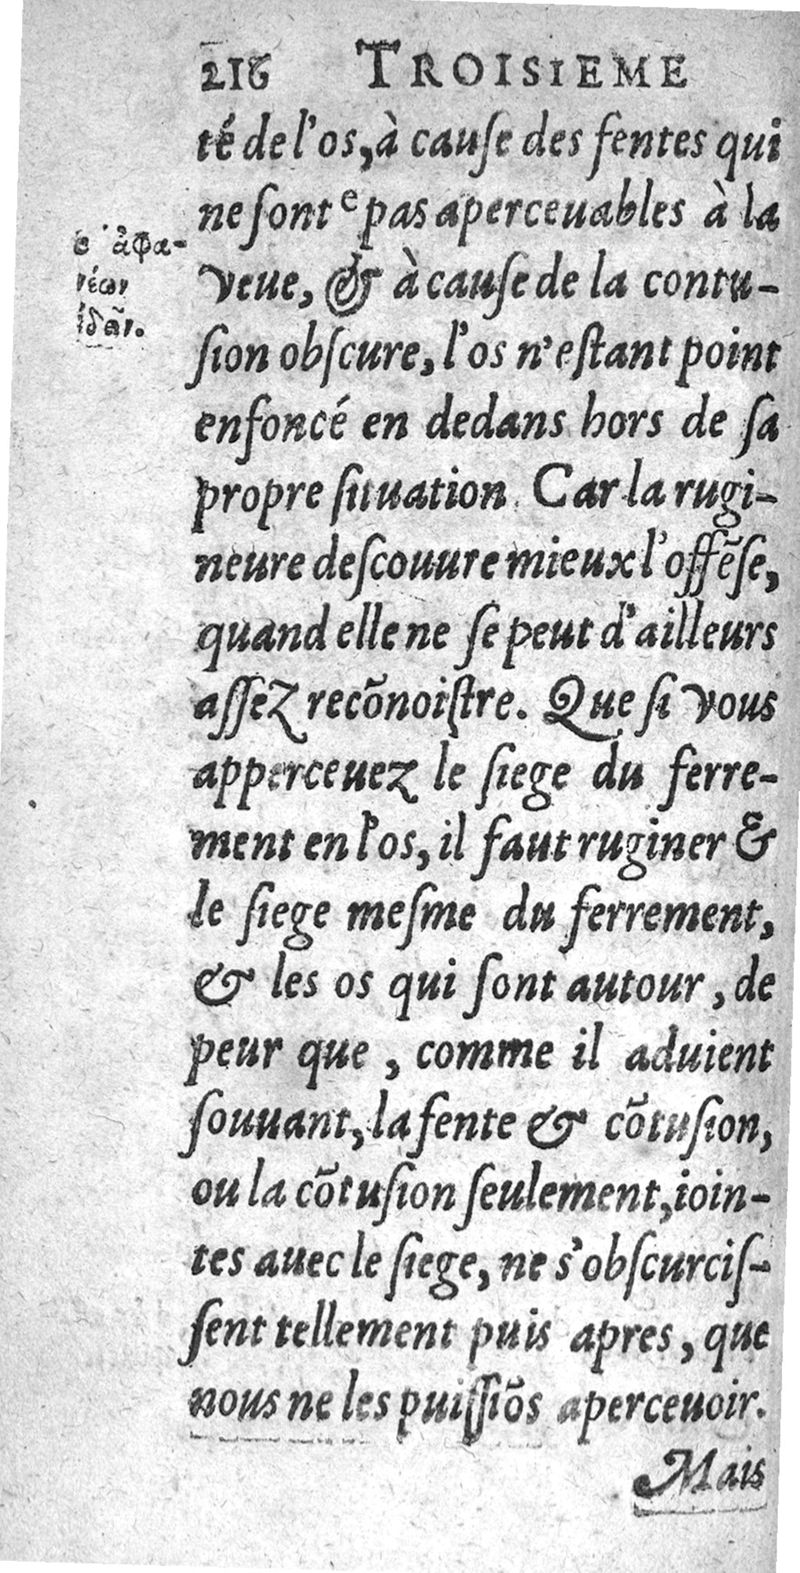 216 TROISIEME
té de l'os, à cauſe des fentes qui
ne ſont e pas aperceuables à la
veue, & à cauſe de la contu-
ſion obſcure, l'os n'eſtant point
enfoncé en dedans hors de ſa
propre ſituation. Car la rugi-
neure deſcouure mieux l'offẽſe,
quand elle ne ſe peut d'ailleurs
aſſez recõnoiſtre. Que ſi vous
apperceuez le ſiege du ferre-
ment en l'os, il faut ruginer &
le ſiege meſme du ferrement,
& les os qui ſont autour, de
peur que, comme il aduient
ſouuant, la fente & cõtuſion,
ou la cõtuſion ſeulement, ioin-
tes auec le ſiege, ne s'obſcurciſ-
ſent tellement puis apres, que
nous ne les puiſſiõs aperceuoir.
Mais
e ἀφα-
νέων
ἰδᾶν.